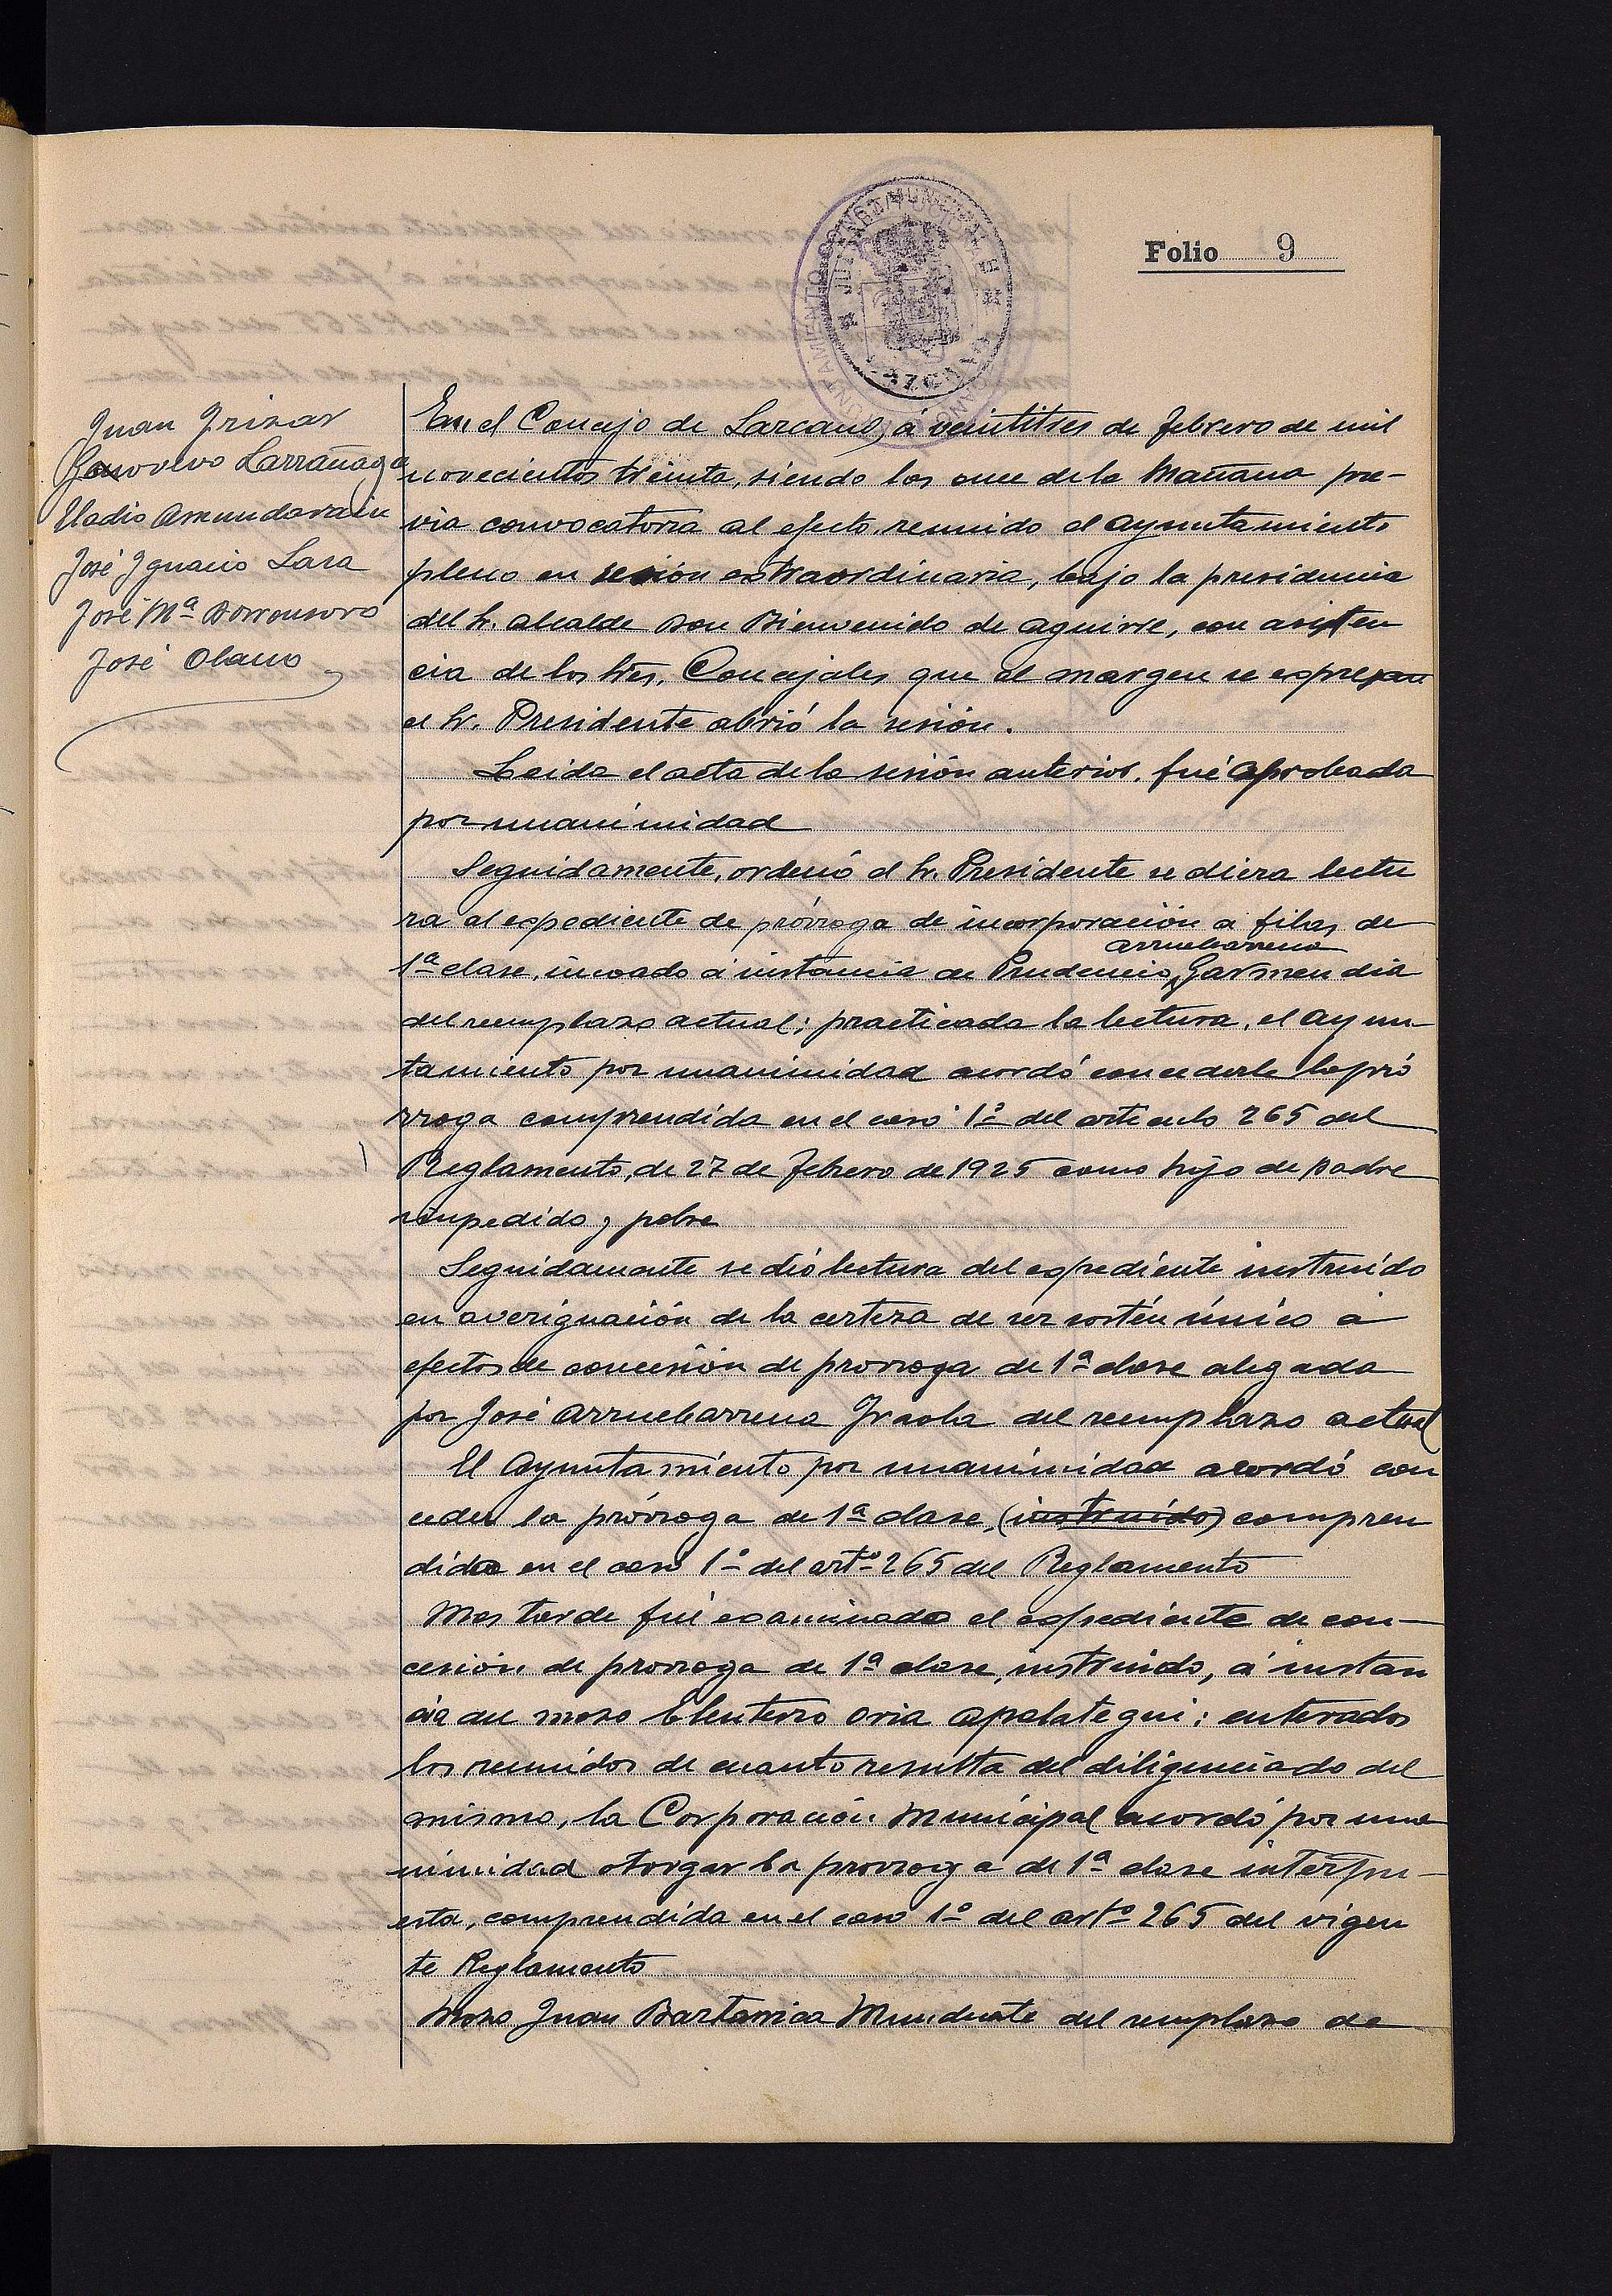 Folio 9
Juan Irizar
Genovevo Larrañaga
Eladio Amundarain
José Ignacio Lasa
José Mª Dorronsoro
José Olano
En el Concejo de Lazcano, á veintitres de febrero de mil
novecientos treinta, siendo las once de la Mañana pre-
via convocatoria al efecto, reunido el Ayuntamiento
pleno en sesión extraordinaria, bajo la presidencia
del Sr. Alcalde Don Bienvenido de Aguirre, con asisten
cia de los Sres. Concejales que al margen se expresan
el Sr. Presidente abrió la sesión.
Leida el acta de la sesión anterior, fué aprobada
por unanimidad
Seguidamente, ordenó el Sr. Presidente se diera lectu
ra al expediente de prórroga de incorporación a filas de
1ª clase, incoado á instancia de Prudencio Arruebarrena Garmendia
del reemplazo actual; practicada la lectura, el Ayun-
tamiento por unanimidad acordó concederle la pró
rroga comprendida en el caso 1º del articulo 265 del
Reglamento, de 27 de febrero de 1925 como hijo de padre
impedido y pobre
Seguidamente se dió lectura del expediente instruído
en averiguación de la certeza de ser sostén único a
efectos de concesión de prorroga de 1ª clase alegada
por José Arruebarrena Iraola del reemplazo actual
El Ayuntamiento por unanimidad acordó con
ceder la prórroga de 1ª clase, (instruído) compren
dida en el caso 1º del artº 265 del Reglamento
Mas tarde fué examinado el expediente de con-
cesión de prorroga de 1ª clase, instruido, á instan
cia del mozo Eleuterio Oria Apalategui: enterados
los reunidos de cuanto resulta del diligenciado del
mismo, la Corporación Municipal acordó por una
nimidad otorgar la prorroga de 1ª clase interpu-
esta, comprendida en el caso 1º del artº 265 del vigen
te Reglamento
Mozo Juan del remplazo de